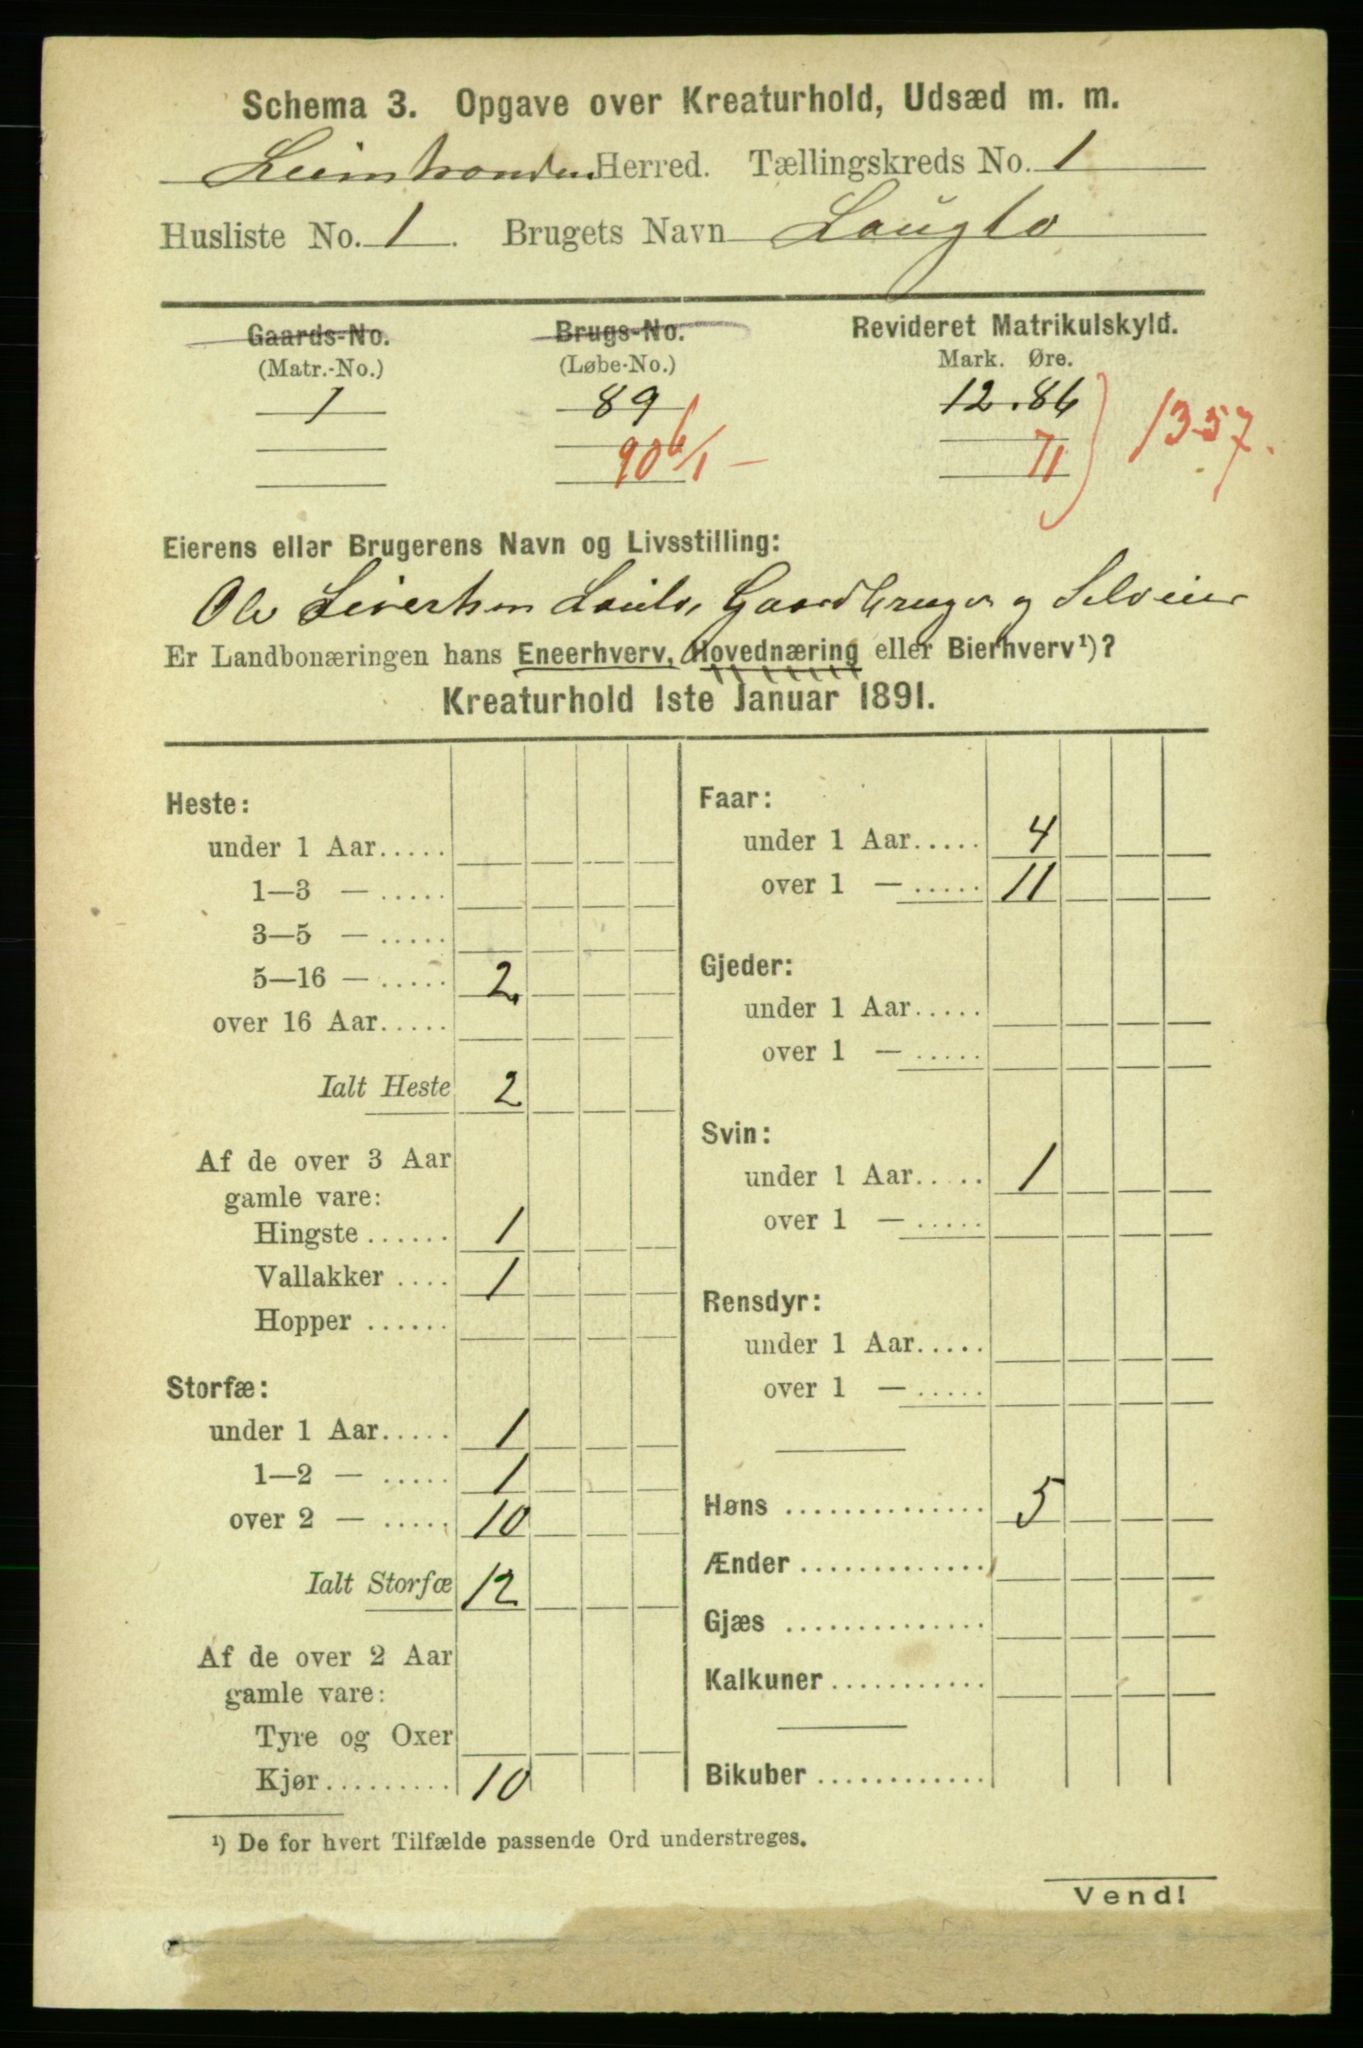 Schema 3. Opgave over Kreaturhold, Udsæd m. m.
Leinstranden Herred. Tællingskreds No. 1
Husliste No. 1. Brugets Navn Lauglo
Gaards-No. Brugs-No. Revideret Matrikulskyld.
(Matr.-No.) (Løbe-No.) Mark. Øre.
1 89 12.86
90 6/1 - 71 13.57.
Eierens eller Brugerens Navn og Livsstilling:
Ole Sivertsen Gaardbruger og Selveier
Er Landbonæringen hans Eneerhverv, Hovednæring eller Bierhverv¹)?
Kreaturhold 1ste Januar 1891.
Heste:
under 1 Aar.....
1—3 — .....
3—5 — .....
5—16 — ..... 2
over 16 Aar.....
Ialt Heste 2
Af de over 3 Aar
gamle vare:
Hingste ...... 1
Vallakker .... 1
Hopper ......
Storfæ:
under 1 Aar..... 1
1—2 — ..... 1
over 2 — ..... 10
Ialt Storfæ 12
Af de over 2 Aar
gamle vare:
Tyre og Oxer
Kjør......... 10
Faar:
under 1 Aar..... 4
over 1 — ..... 11
Gjeder:
under 1 Aar.....
over 1 — .....
Svin:
under 1 Aar..... 1
over 1 — .....
Rensdyr:
under 1 Aar.....
over 1 — .....
Høns .............. 5
Ænder .............
Gjæs ..............
Kalkuner ...........
Bikuber ............
¹) De for hvert Tilfælde passende Ord understreges.
Vend!